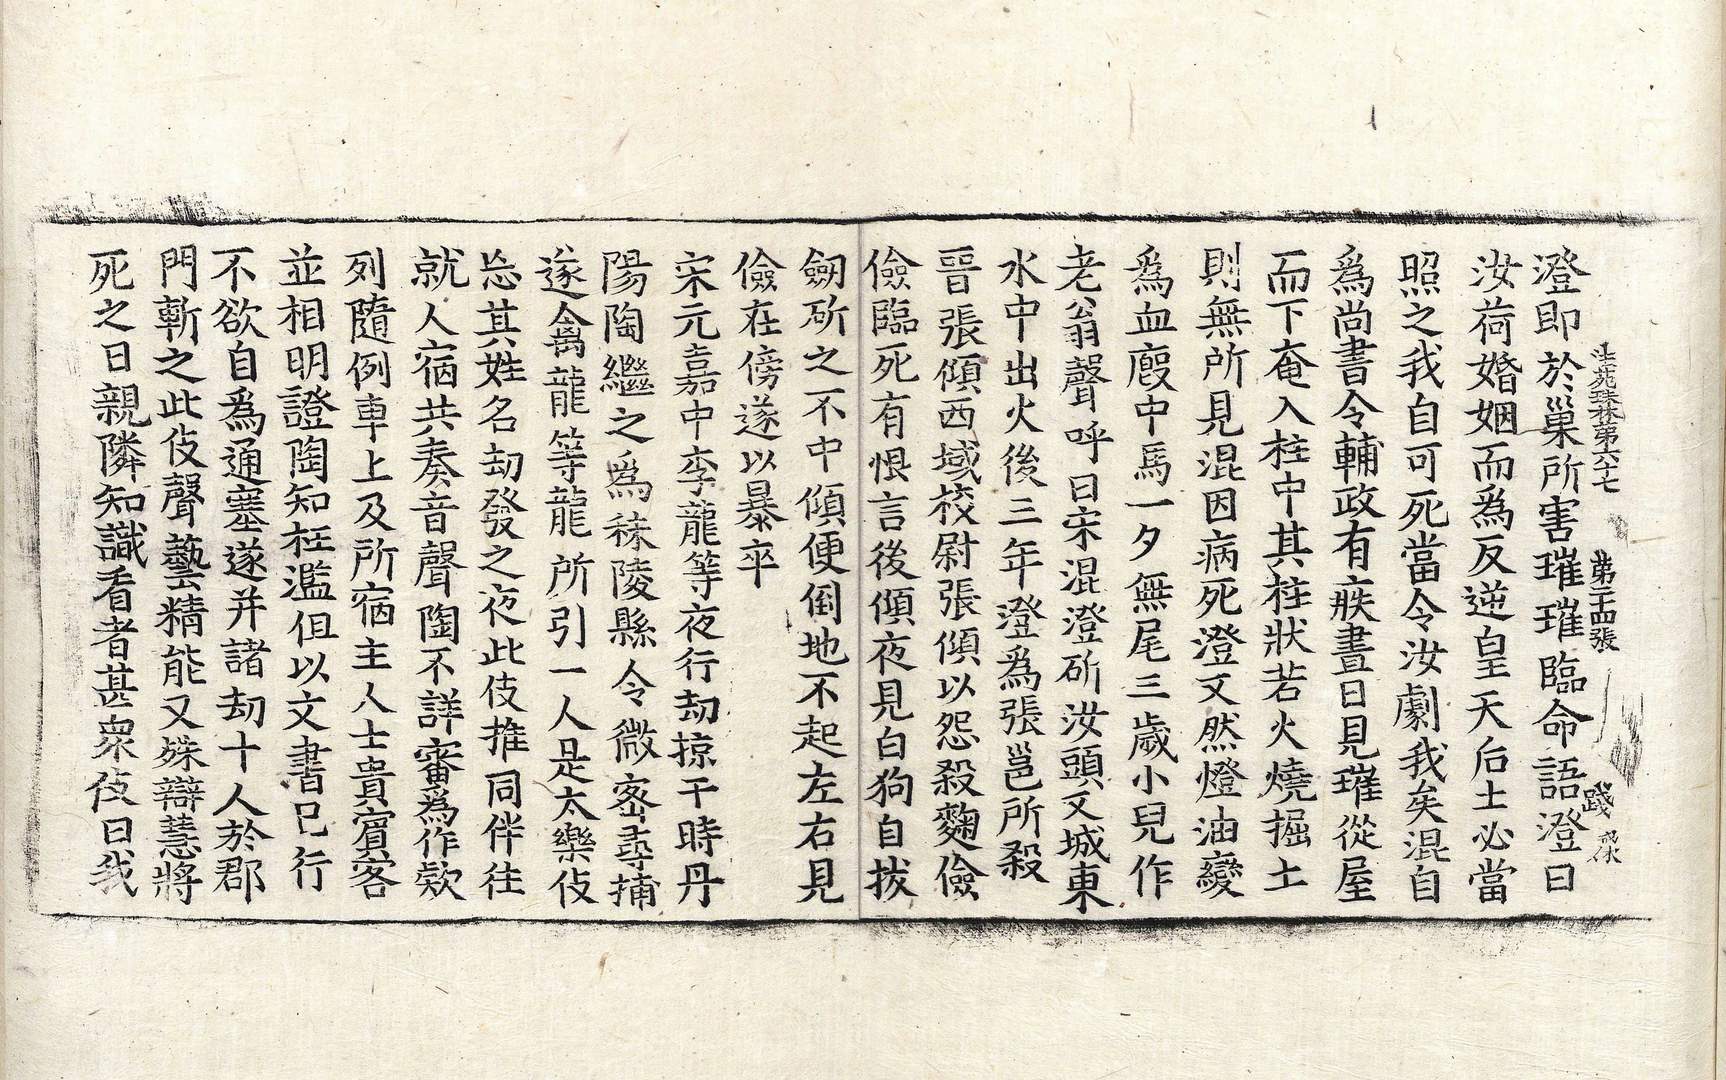 澄即於巢所害璀璀臨命語澄曰
法苑珠林第六十七 第二十四張 踐
汝荷婚姻而爲反逆皇天后土必當
照之我自可死當令汝劇我矣混自
爲尚書令輔政有疾晝日見璀從屋
而下奄入柱中其柱狀若火燒掘土
則無所見混因病死澄又然燈油變
爲血廐中馬一夕無尾三歲小兒作
老翁聲呼曰宋混澄斫汝頭又城東
水中出火後三年澄爲張邕所殺
晉張傾西域校尉張傾以怨殺麴儉
儉臨死有恨言後傾夜見白狗自拔
劒斫之不中傾便倒地不起左右見
儉在傍遂以暴卒
宋元嘉中李龍等夜行劫掠于時丹
陽陶繼之爲秣陵縣令微密尋捕
遂禽龍等龍所引一人是太樂伎
忘其姓名劫發之夜此伎推同伴往
就人宿共奏音聲陶不詳審爲作欵
列隨例車上及所宿主人士貴賓客
並相明證陶知枉濫但以文書已行
不欲自爲通塞遂并諸劫十人於郡
門斬之此伎聲藝精能又殊辯慧將
死之日親隣知識看者甚衆伎曰我